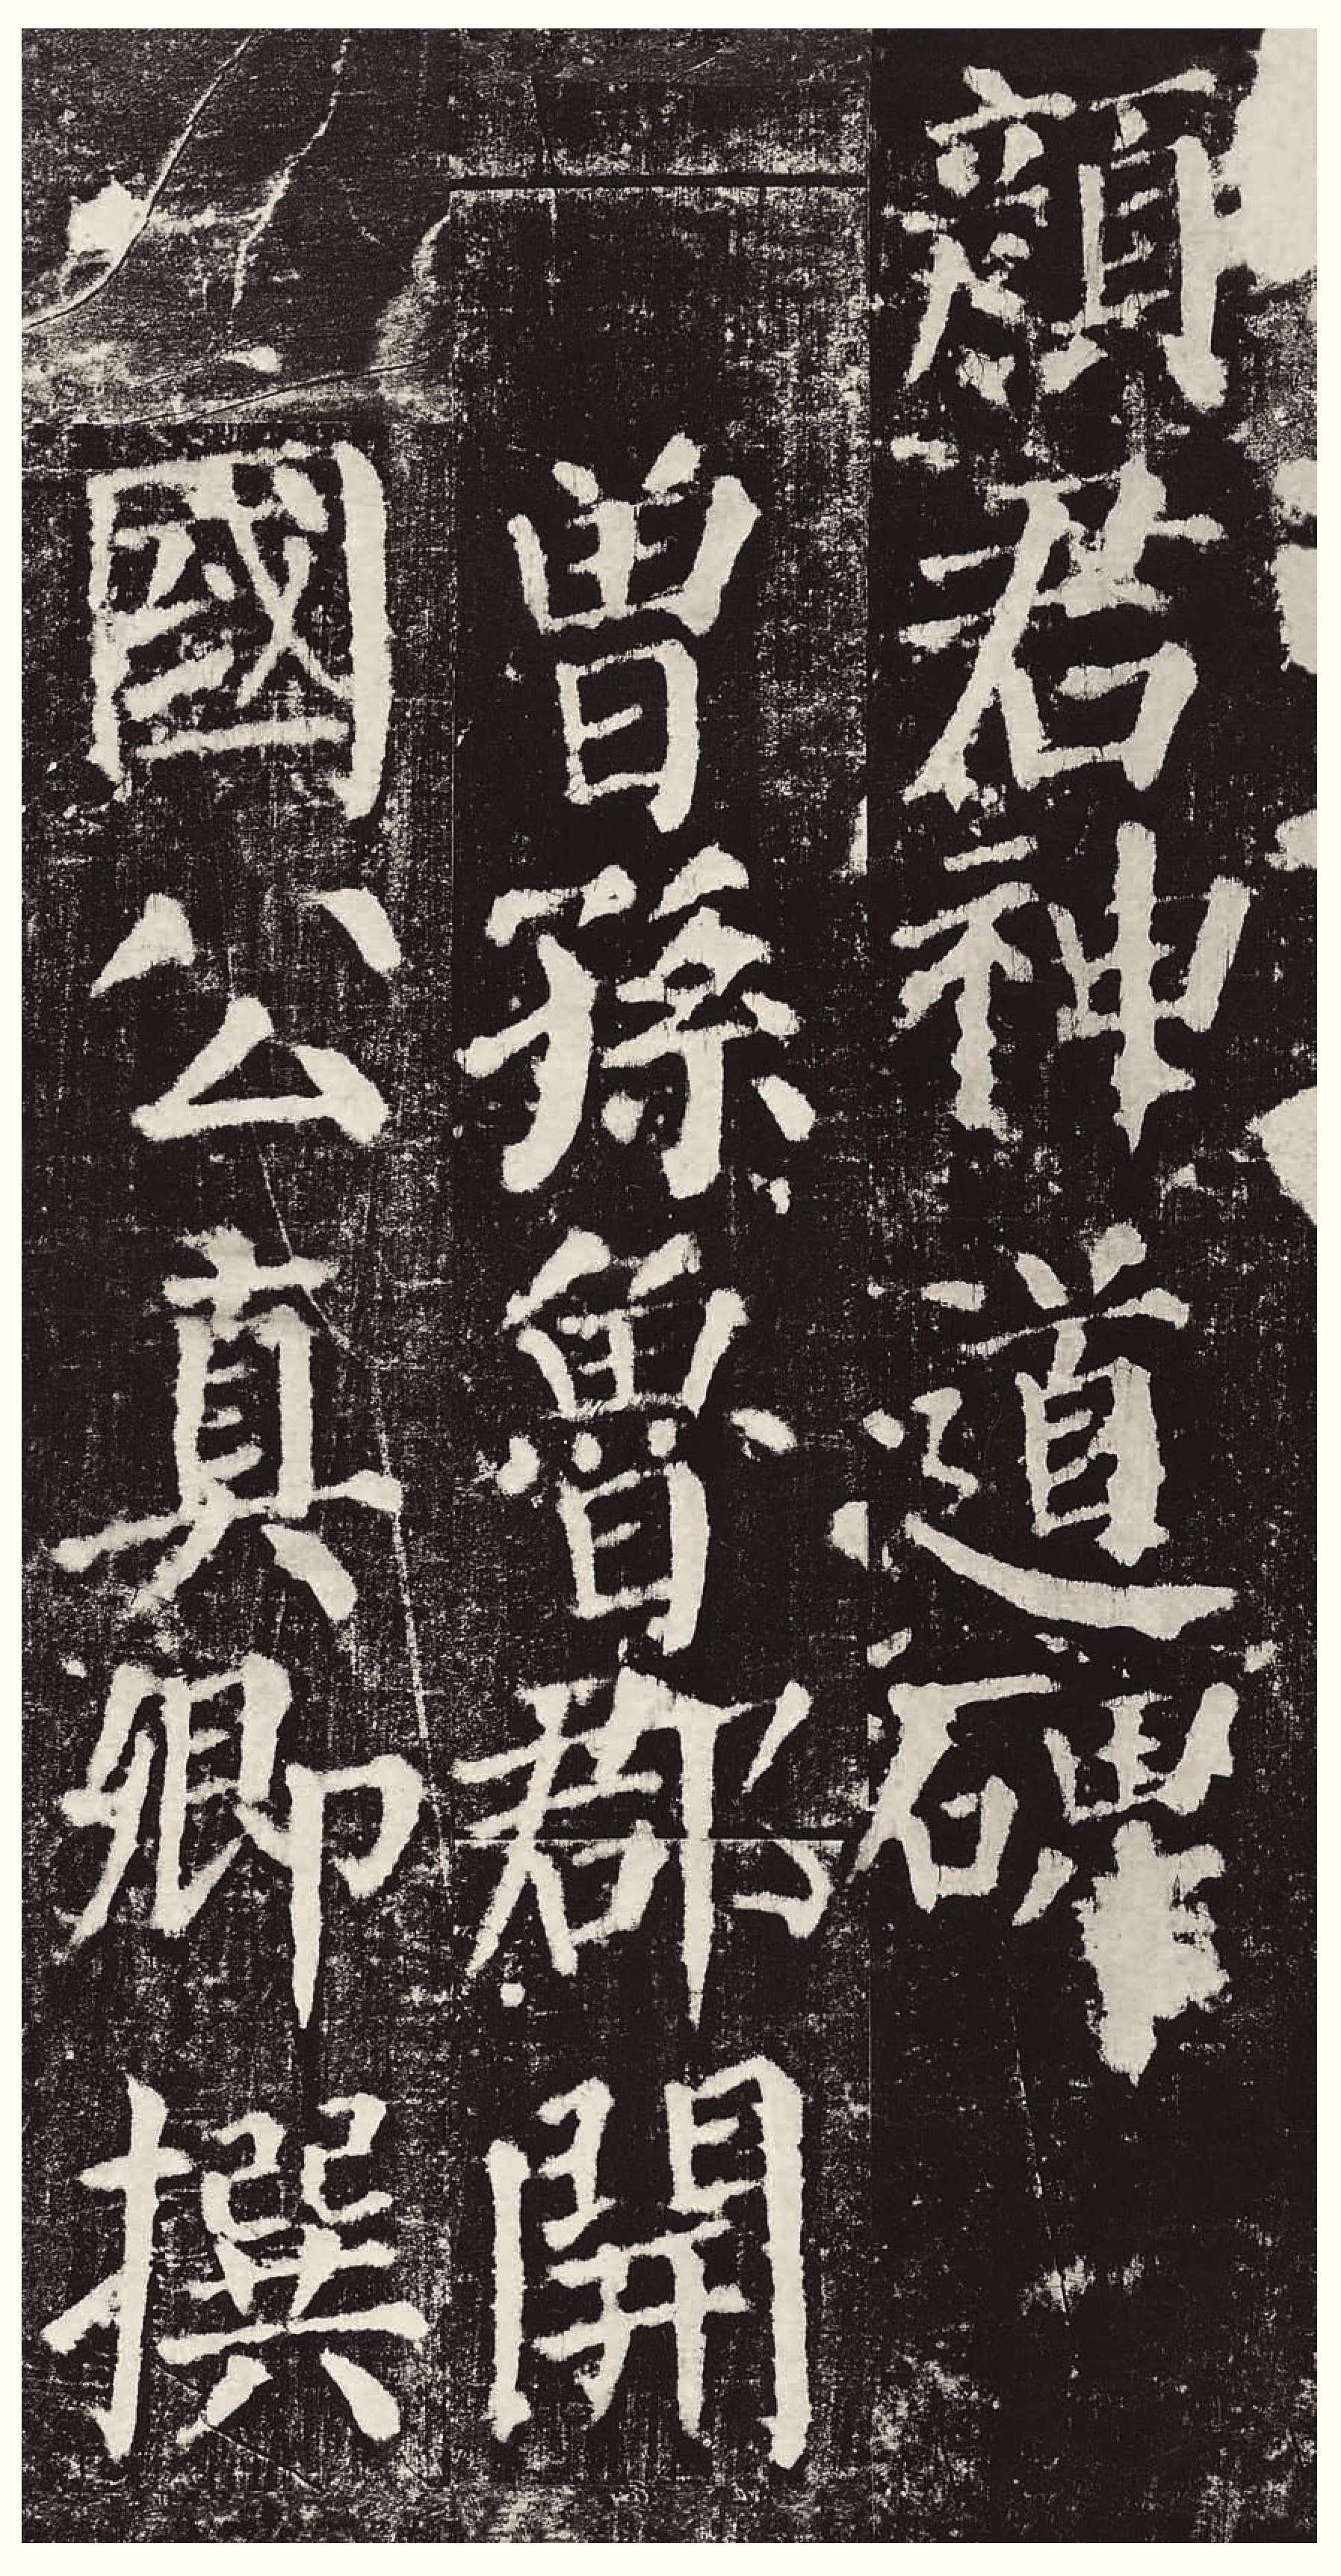 顏君神道碑
曾孫魯郡開
國公真卿撰